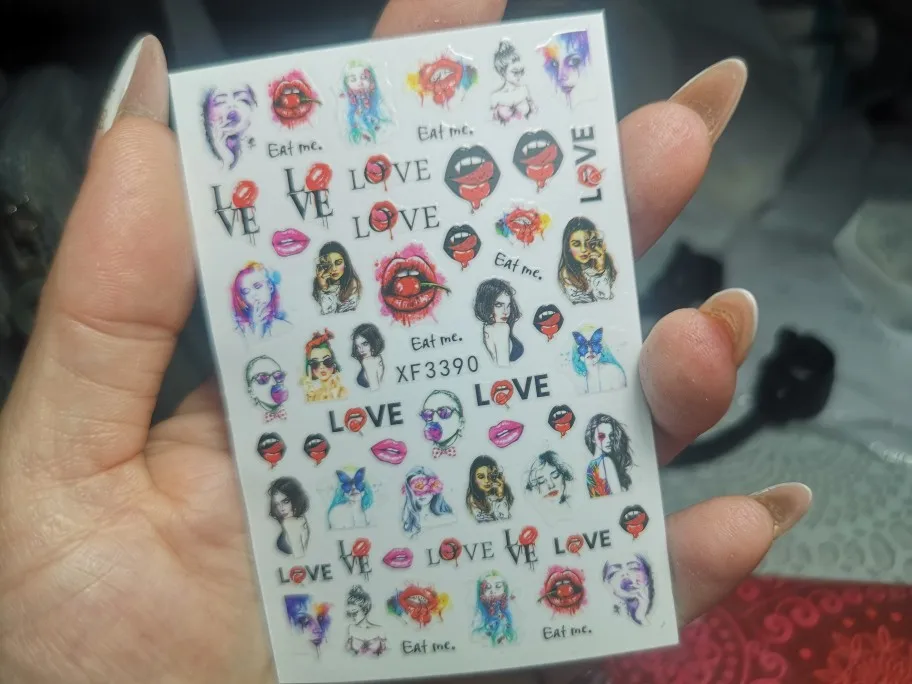 Eat me.
Eat me.
LOVE
LO
VE
LO
VE
LOVE
LOVE
Eat me.
Eat me.
XF3390
LOVE
LOVE
LOVE
LO
VE
LOVE
LO
VE
LOVE
Eat me.
Eat me.